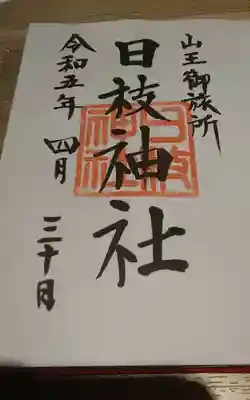 山王御旅所
日枝神社
令和五年
四月
三十日
日枝神社